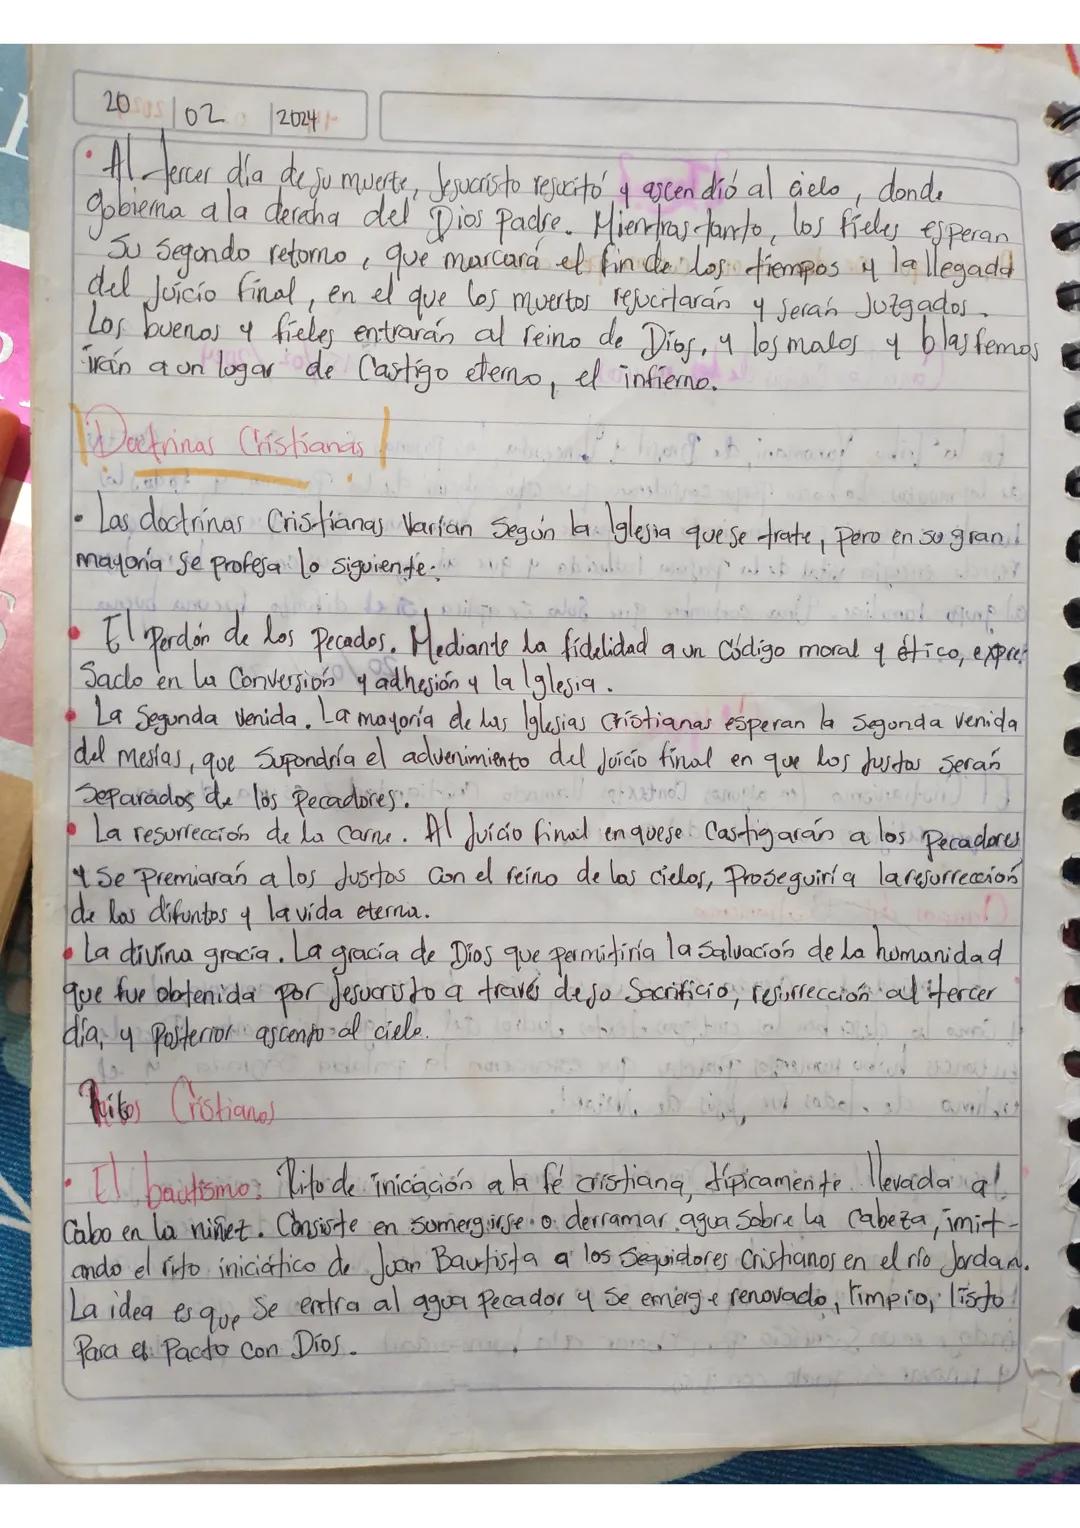 20 / 02 / 2024
• Al tercer día de su muerte, Jesucristo resucitó y ascendió al cielo, donde
gobierna a la derecha del Dios Padre. Mientras tanto, los fieles esperan
Su segundo retorno, que marcará el fin de los tiempos y la llegada
del Juicio final, en el que los muertos resucitarán y serán Juzgados.
Los buenos y fieles entrarán al reino de Dios, y los malos y blasfemos
irán a un lugar de Castigo eterno, el infierno.
Doctrinas Cristianas
• Las doctrinas Cristianas Varían Según la Iglesia que se trate, pero en su gran
mayoría se profesa lo siguiente:
• El Perdón de los Pecados. Mediante la fidelidad a un Código moral y ético, expre-
Sado en la Conversión y adhesión y la Iglesia.
• La Segunda Venida. La mayoría de las Iglesias Cristianas esperan la Segunda Venida
del mesías, que Supondría el advenimiento del Juicio final en que los Justos Serán
Separados de los Pecadores.
• La resurrección de la Carne. Al Juicio final en que se Castigarán a los Pecadores
y Se Premiarán a los Justos Con el reino de los cielos, Proseguiría la resurrección
de los difuntos y la vida eterna.
• La divina gracia. La gracia de Dios que permitiría la Salvación de la humanidad
que fue obtenida por Jesucristo a través de su Sacrificio, resurrección al tercer
día, y Posterior ascenso al cielo.
Ritos Cristianos
• El bautismo: Rito de iniciación a la fé cristiana, típicamente llevada al
Cabo en la niñez. Consiste en sumergirse o derramar agua Sobre la Cabeza, imit-
ando el rito iniciático de Juan Bautista a los Seguidores Cristianos en el río Jordan.
La idea es que Se entra al agua Pecador y Se emerge renovado, limpio, listo
Para el Pacto con Dios.